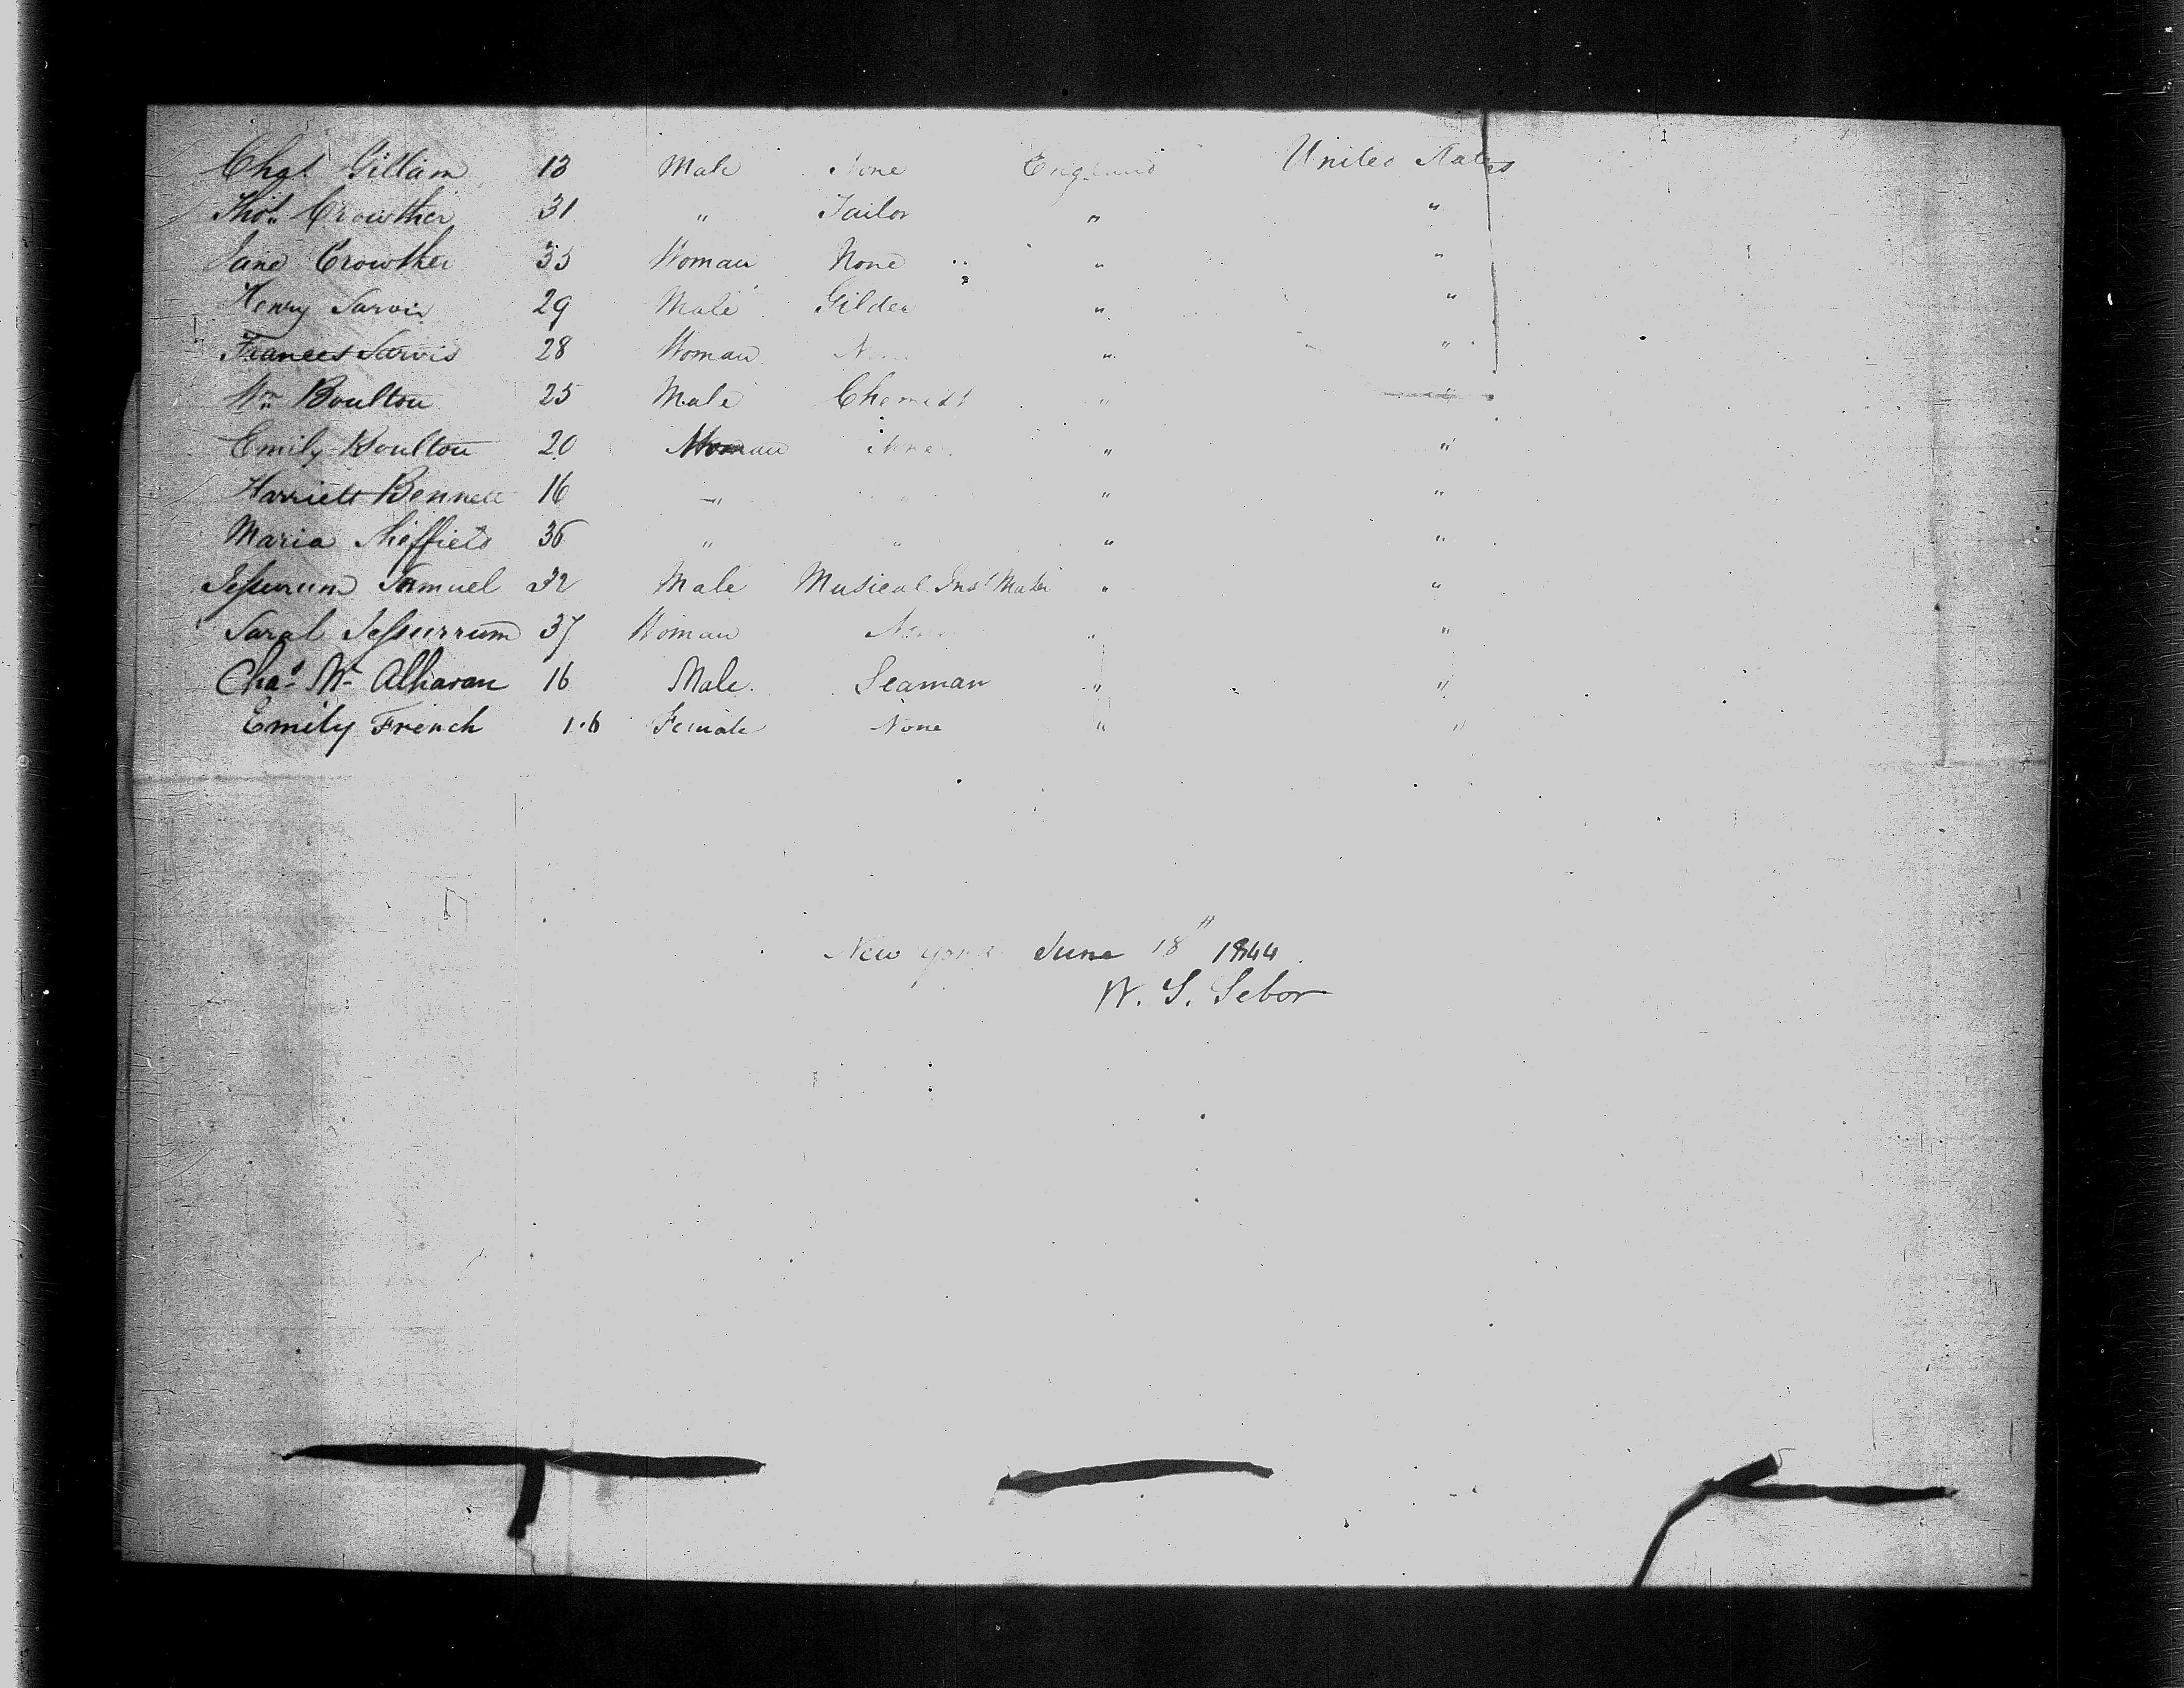 Chas. Gillam 13 Male None England United States
Thos. Crowther 31 " Tailor " "
Jane Crowther 35 Woman None " "
Henry Jarvis 29 Male Gilder " "
Frances Jarvis 28 Woman None " "
Wm Boulton 25 Male Chemist " "
Emily Boulton 20 Woman None " "
Harriett Bennett 16 " " " "
Maria Sheffield 36 " " " "
Jessurum Samuel 32 Male Musical Inst Maker " "
Sarah Jessurrum 37 Woman None " "
Chas. Wm 16 Male. Seaman " "
Emily French 1.6 Female None " "
New York June 18" 1844
W. S. Sebor